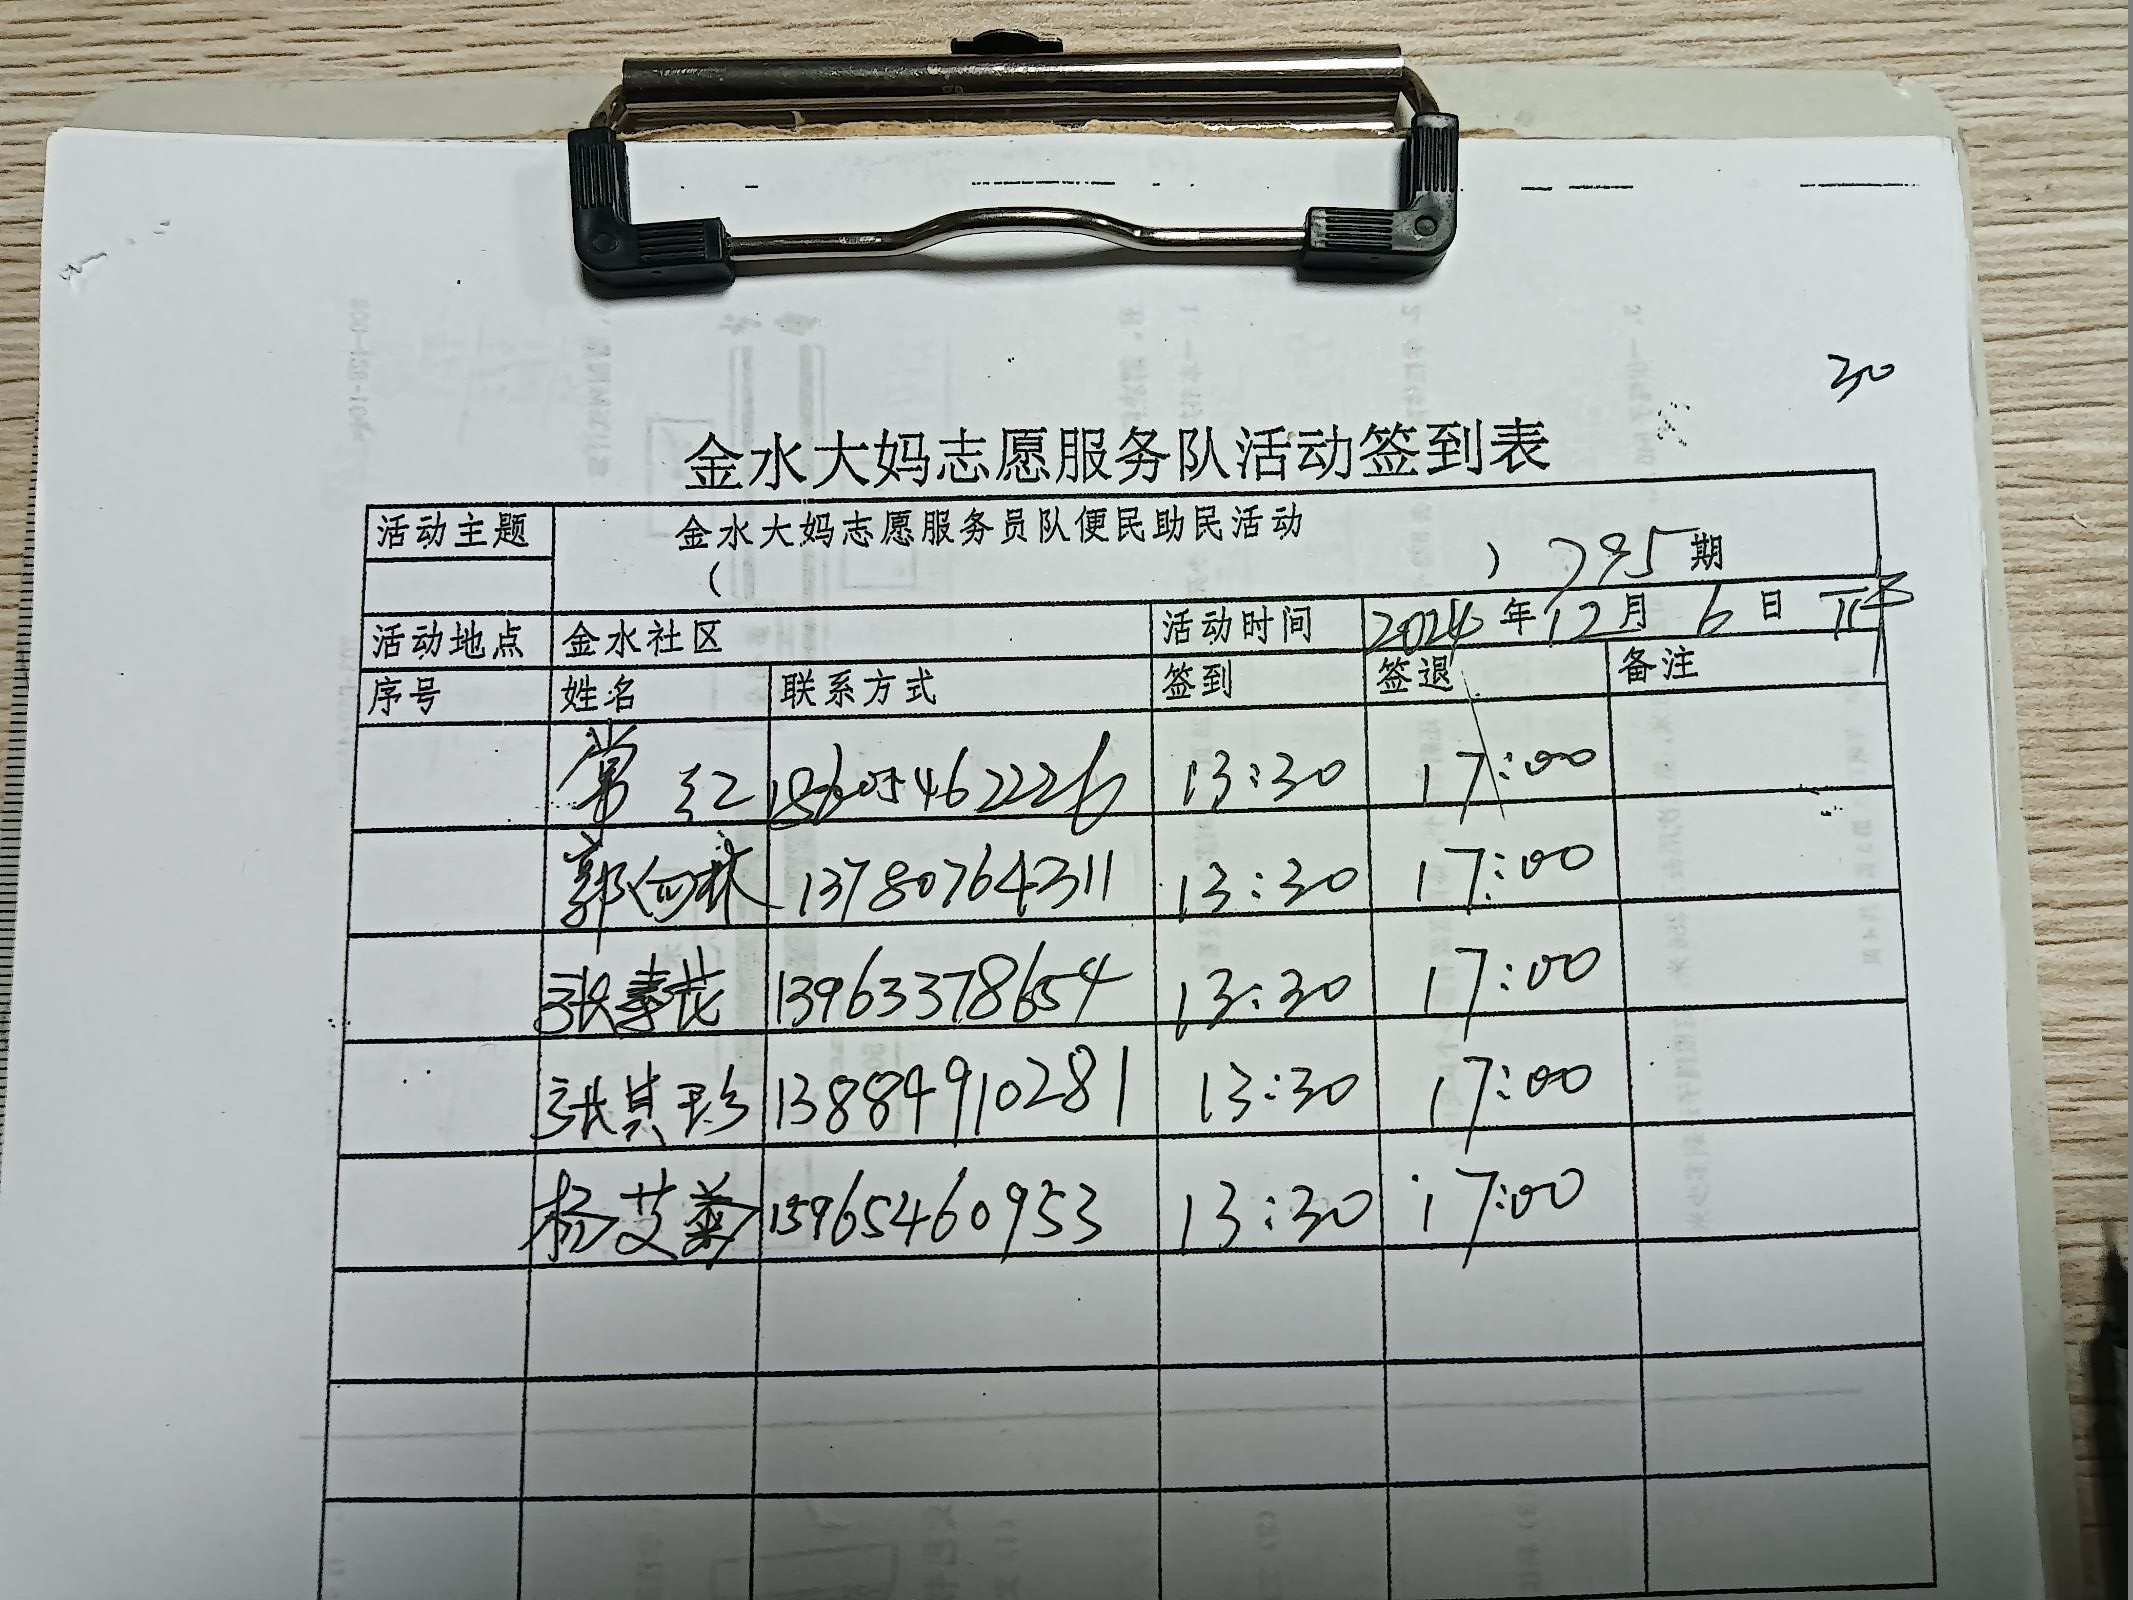 30
金水大妈志愿服务队活动签到表
活动主题 金水大妈志愿服务员队便民助民活动
( ) 795期
活动地点 金水社区 活动时间 2024年12月6日
序号 姓名 联系方式 签到 签退 备注
常红 18605462226 13:30 17:00
郭向林 13780764311 13:30 17:00
张素花 13963378654 13:30 17:00
张其珍 13884910281 13:30 17:00
杨艾菊 15965460953 13:30 17:00